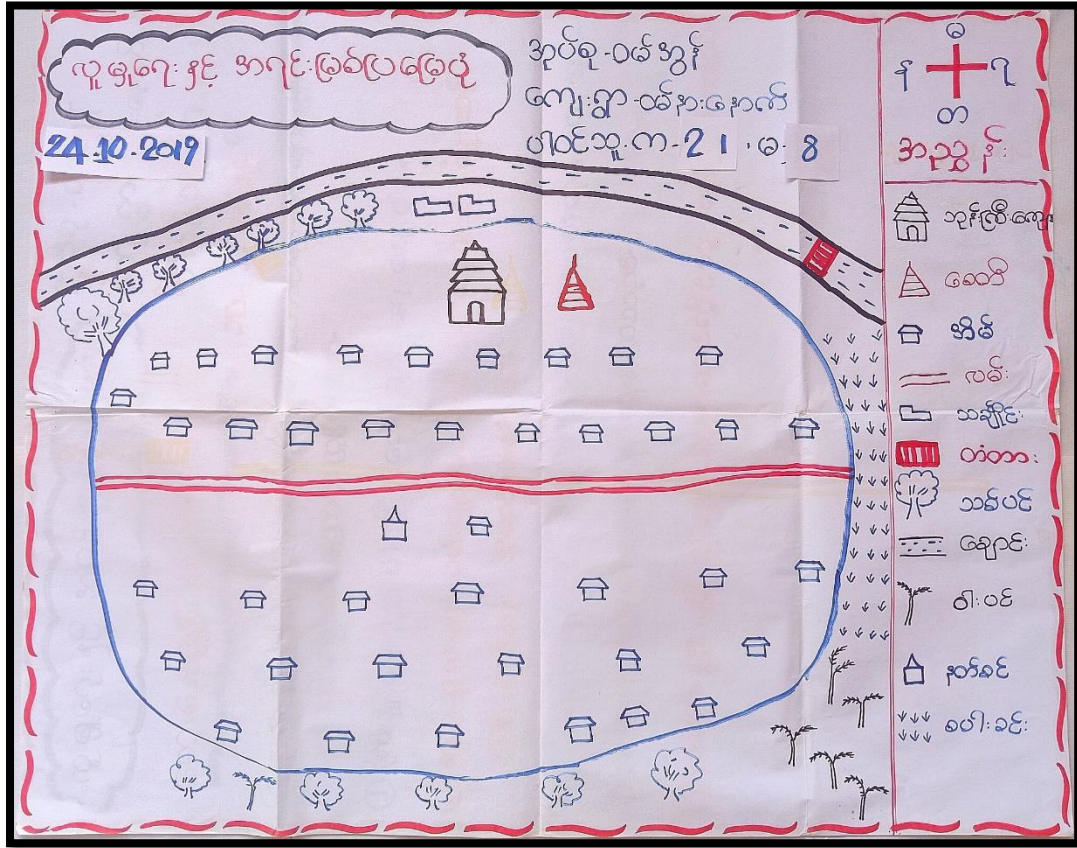 လူမှုရေးနှင့် အရင်းမြစ်ပြမြေပုံ
24.10.2019
အုပ်စု-ဝမ်အွန်
ကျေးရွာ-ဝမ်နားနောက်
ပါဝင်သူ.က-21.မ-8
မ
န ရ
တ
အညွှန်း
ဘုန်းကြီးကျောင်း
စေတီ
အိမ်
လမ်း
သချိုင်း
တံတား
သစ်ပင်
ချောင်း
ဝါးပင်
နတ်စင်
စပါးခင်း